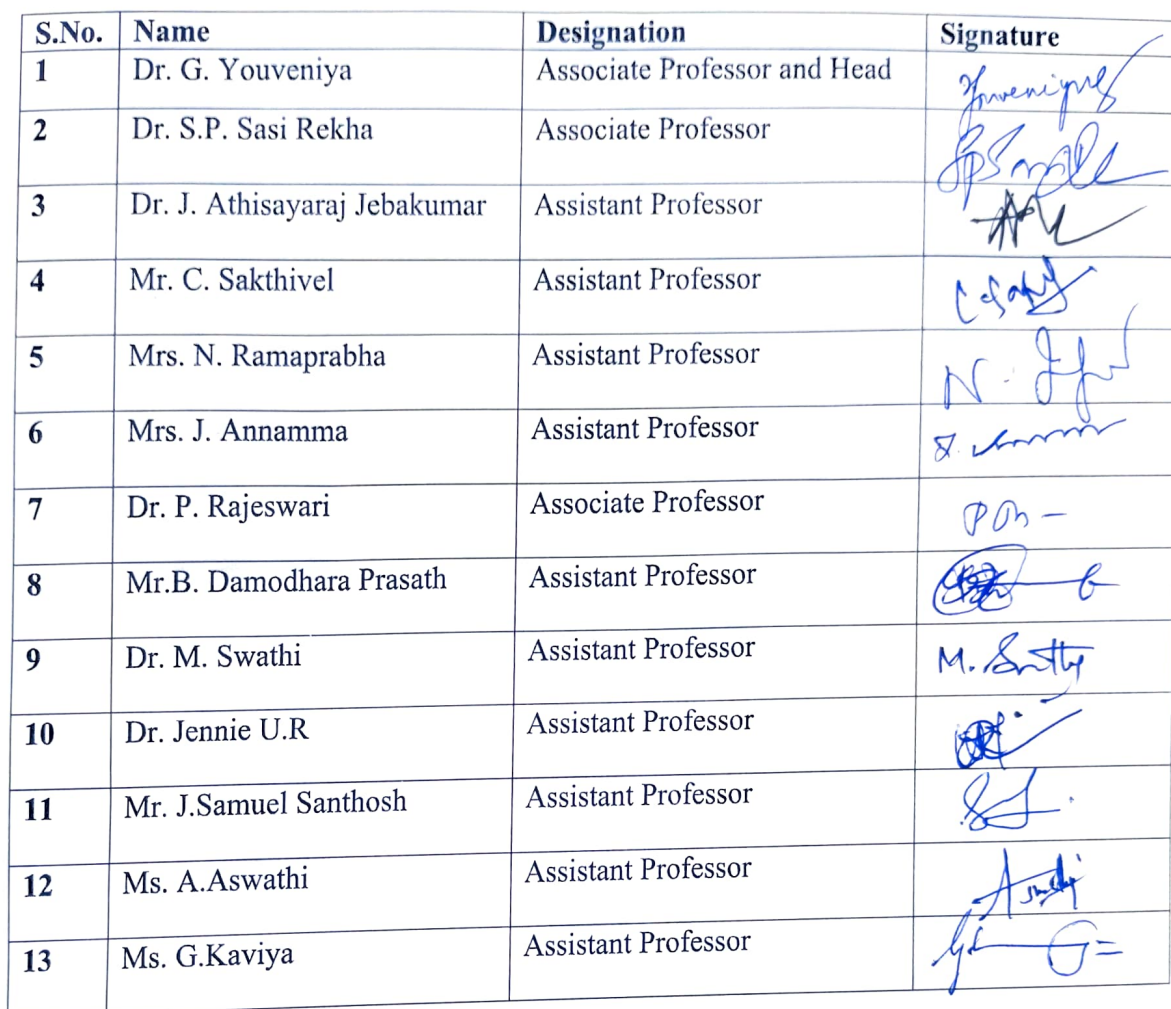 S.No. Name Designation Signature
1 Dr. G. Youveniya Associate Professor and Head
2 Dr. S.P. Sasi Rekha Associate Professor
3 Dr. J. Athisayaraj Jebakumar Assistant Professor
4 Mr. C. Sakthivel Assistant Professor
5 Mrs. N. Ramaprabha Assistant Professor N.
6 Mrs. J. Annamma Assistant Professor
7 Dr. P. Rajeswari Associate Professor
8 Mr.B. Damodhara Prasath Assistant Professor
9 Dr. M. Swathi Assistant Professor M.
10 Dr. Jennie U.R Assistant Professor
11 Mr. J.Samuel Santhosh Assistant Professor
12 Ms. A.Aswathi Assistant Professor
13 Ms. G.Kaviya Assistant Professor